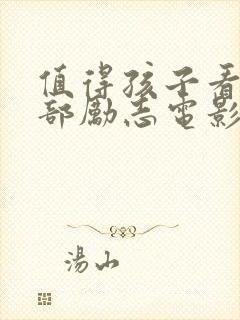 值得孩子看
部勵志電影
湯山